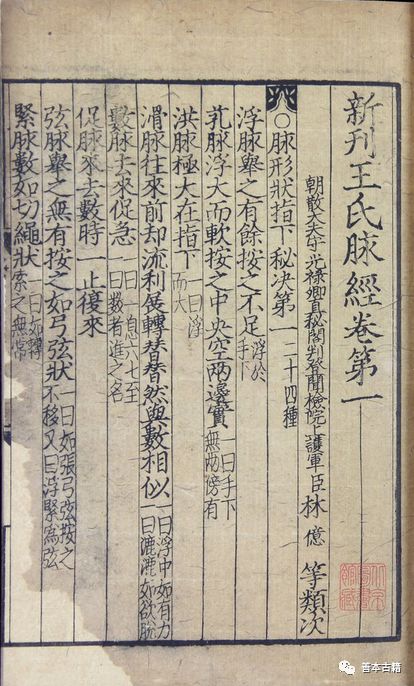 新刊王氏脉經卷第一
朝散大夫守光禄卿直秘閣判登聞檢院上護軍臣林億等類次
〇脉形狀指下秘决第一二十四種
浮脉舉之有餘按之不足浮於手下
芤脉浮大而軟按之中央空兩邊實一曰手下無兩傍有
洪脉極大在指下一曰浮而大
滑脉往來前却流利展轉替替然與數相似一曰浮中如有力一曰漉漉如欲脫
數脉去來促急一曰一息六七至一曰數者進之名
促脉來去數時一止復來
弦脉舉之無有按之如弓弦狀一曰如張弓弦按之不移又曰浮緊為弦
緊脉數如切繩狀一曰如轉索之無常
善本古籍